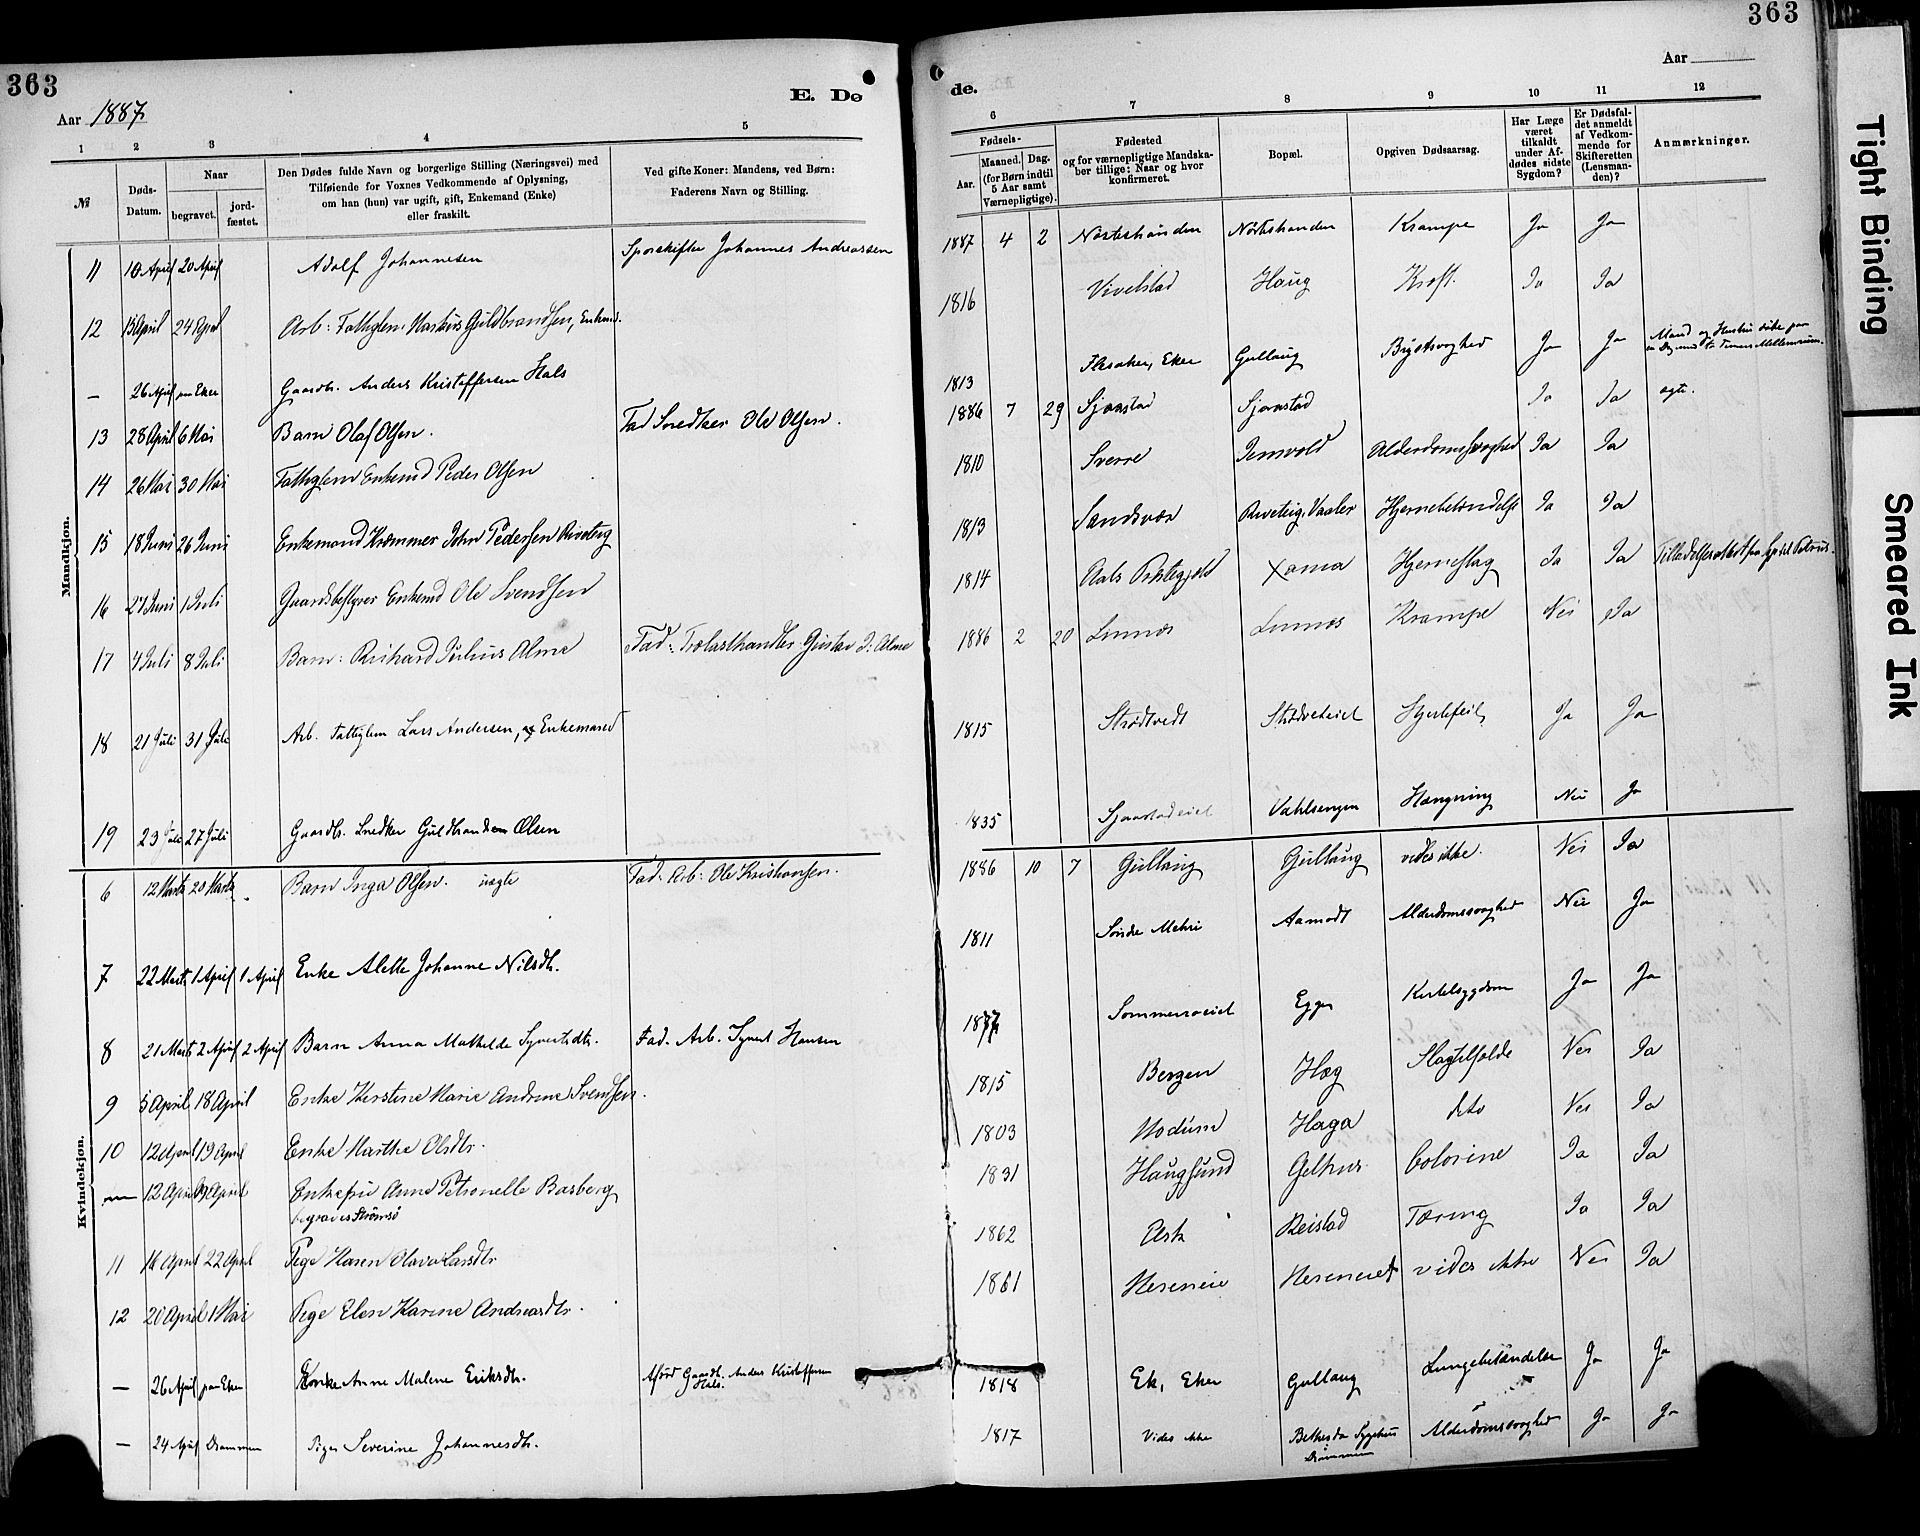 363
Aar 1887
E. Dø
1 2 3 4 5
№
Døds-Datum.
Naar
begravet.
jordfæstet.
Den Dødes fulde Navn og borgerlige Stilling (Næringsvei) med
Tilføiende for Voxnes Vedkommende af Oplysning,
om han (hun) var ugift, gift, Enkemand (Enke)
eller fraskilt.
Ved gifte Koner: Mandens, ved Børn:
Faderens Navn og Stilling.
Mandkjøn.
11 10 April 20 April Adolf Johannesen Sporskifter Johannes Andreassen
12 15 April 24 April Arb: Fattiglem Markus Guldbrandsen, Enkemd.
— 26 April paa Eker Gaardb. Anders Kristoffersen Hals
13 28 April 6 Mai Barn Olaf Olsen. Fad Snedker Ole Olsen.
14 26 Mai 30 Mai Fattiglem Enkemd Peder Olsen
15 18 Juni 26 Juni Enkemand Kræmmer John Pedersen
16 27 Juni 1 Juli Gaardsbestyrer Enkemd Ole Svendsen
17 4 Juli 8 Juli Barn: Richard Julius Alme Fad: Trælasthandler Gustav J: Alme
18 21 Juli 31 Juli Arb. Fattiglem Lars Andersen, Enkemand
19 23 Juli 27 Juli Gaardb. Snedker Guldbrandsen Olsen
Kvindekjøn.
6 12 Marts 20 Marts Barn Inga Olsen. uægte Fad. Arb: Ole Kristiansen.
7 22 Marts 1 April 1 April Enke Alette Johanne Nilsdtr.
8 21 Marts 2 April 2 April Barn Anna Mathilde Syvertsdtr. Fad. Arb. Syvert Hansen
9 5 April 18 April Enke Kirstine Marie Andrine Svendsen.
10 12 April 19 April Enke Marthe Olsdtr.
— 12 April 19 April Enkefru Anne Petronelle Basberg
begraves Strømsø
11 16 April 22 April Pige Karen Olava Larsdtr
12 20 April 1 Mai Pige Elen Karine Andreasdtr.
— 26 April paa Eker Anne Malene Eriksdtr. Afdød Gaardb. Anders Kristoffersen
Hals.
— 24 April Drammen Pigen Severine Johannesdtr.
363
Aar
de.
6 7 8 9 10 11 12
Fødsels-
Aar.
Maaned. Dag.
(for Børn indtil
5 Aar samt
Værnepligtige).
Fødested
og for værnepligtige Mandska-
ber tillige: Naar og hvor
konfirmeret.
Bopæl.
Opgiven Dødsaarsag.
Har Læge
været
tilkaldt
under Af-
dødes sidste
Sygdom?
Er Dødsfal-
det anmeldt
af Vedkom-
mende for
Skifteretten
(Lensman-
den)?
Anmærkninger.
1887 4 2 Nøsteshanden Nøsteshanden Krampe Ja Ja
1816 Vivelstad Haug Kræft. Ja Ja
1813 Flesaker, Eker Gullaug Brystsvaghed Ja Ja Mand og Hustru døde paa
1886 7 29 Sjaastad Sjaastad Ja Ja ægte.
1810 Sverre Alderdomssvaghed Ja Ja
1813 Sandsvær Hjernebetændelse Ja Ja
1814 Aals Præstegjeld Hjerneslag Ja Ja
1886 2 20 Linnes Linnes Krampe Nei Ja
1815 Strødtvedt Hjertefeil Ja Ja
1835 Sjaastadeiet Vahlsengen Hængning Nei Ja
1886 10 7 Gullaug Gullaug vides ikke. Nei Ja
1811 Søndre Aamodt Alderdomssvaghed Nei Ja
1877 Egge Kirtelsygdom Ja Ja
1815 Bergen Hæg Slagtilfælde Nei Ja
1803 Modum Haga dito Nei Ja
1831 Haugsund Gelhus Colorine Ja Ja
1862 Ask Reistad Tæring Ja Ja
1861 Hereneie vides ikke Nei Ja
1818 Ek, Eker Gullaug Lungebetændelse Ja Ja
1817 Vides ikke Bethesda Sygehus Alderdomssvaghed Ja Ja
Drammen
Tight Binding
Smeared Ink